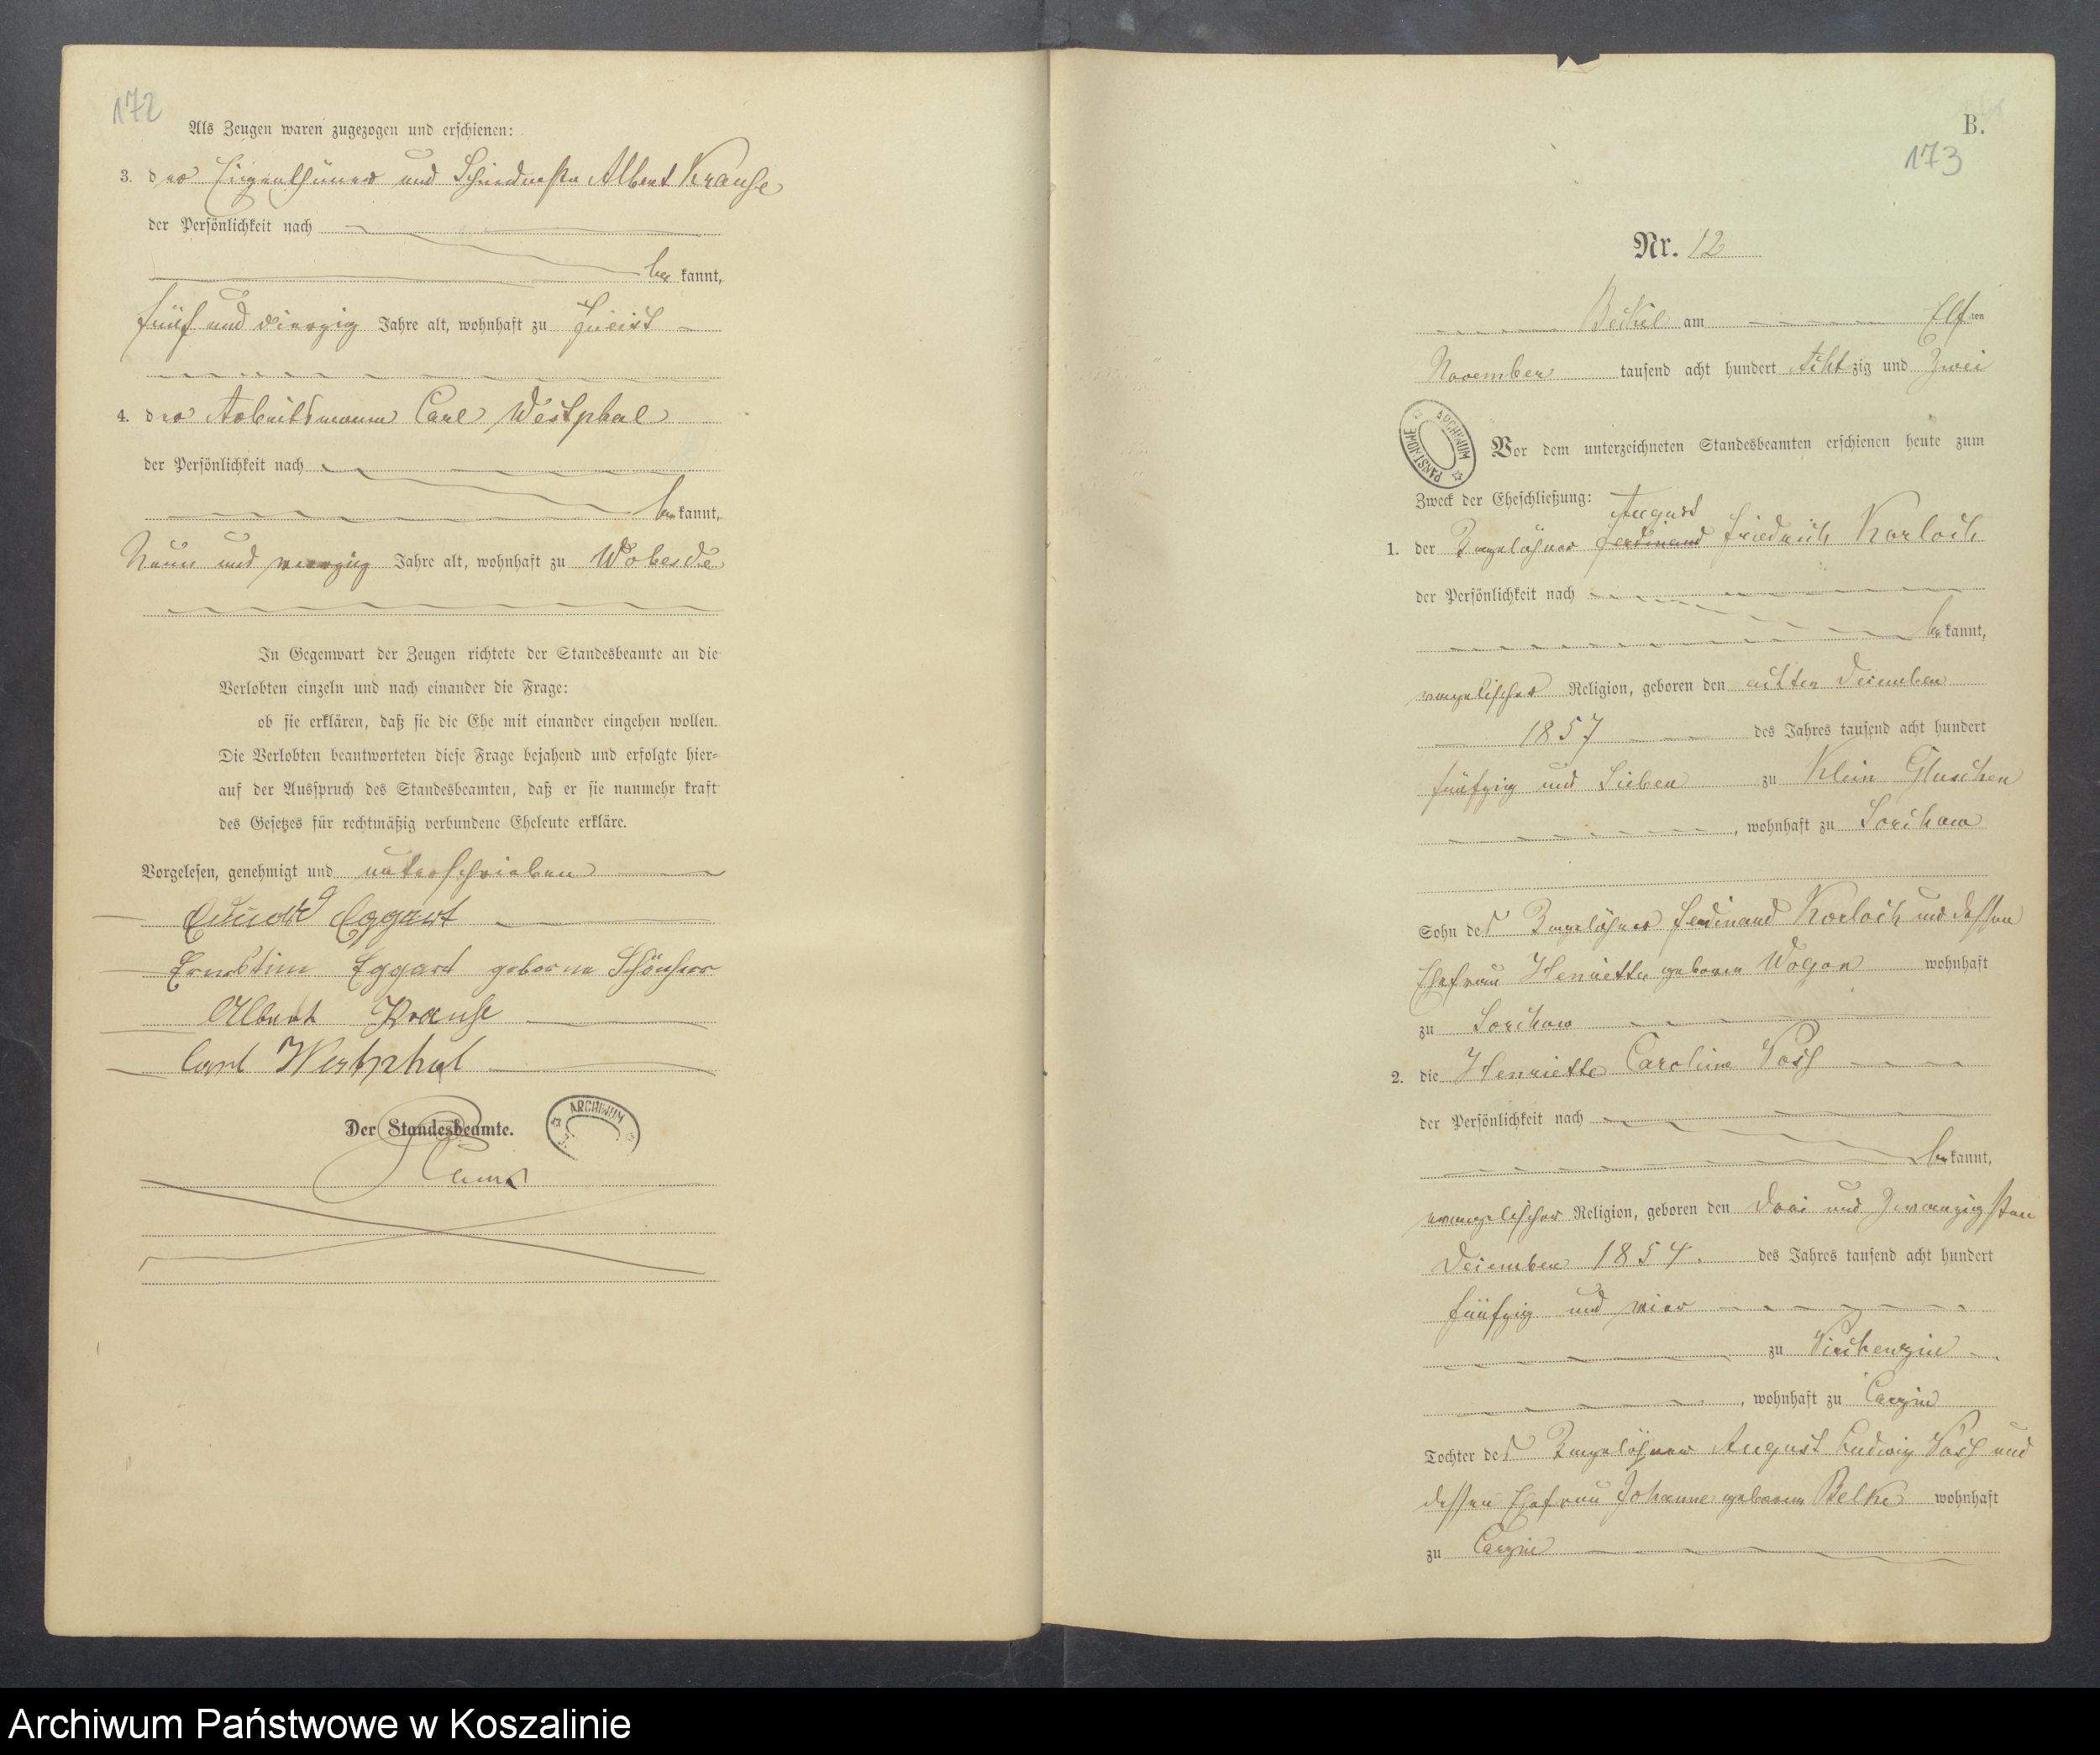 172
Als Zeugen waren zugezogen und erschienen:
3. der Eigenthümer und Albert Krause
der Persönlichkeit nach
be kannt,
fünf und vierzig Jahre alt, wohnhaft zu
4. der Arbeitsmann Carl Westphal
der Persönlichkeit nach
be kannt,
Neun und vierzig Jahre alt, wohnhaft zu Wobesde
In Gegenwart der Zeugen richtete der Standesbeamte an die
Verlobten einzeln und nach einander die Frage:
ob sie erklären, daß sie die Ehe mit einander eingehen wollen.
Die Verlobten beantworteten diese Frage bejahend und erfolgte hier=
auf der Ausspruch des Standesbeamten, daß er sie nunmehr kraft
des Gesetzes für rechtmäßig verbundene Eheleute erkläre.
Vorgelesen, genehmigt und unterschrieben
Eggert
Ernestine Eggert geborne
Albert Krause
Carl Westphal
Der Standesbeamte.
ARCHIWUM
B.
173
Nr. 12
am Elf ten
November tausend acht hundert Acht zig und Zwei
ARCHIWUM PAŃSTWOWE
Vor dem unterzeichneten Standesbeamten erschienen heute zum
Zweck der Eheschließung:
August
1. der Tagelöhner Ferdinand Friedrich Korloch
der Persönlichkeit nach
be kannt,
evangelischer Religion, geboren den achten Dezember
1857 des Jahres tausend acht hundert
fünfzig und Sieben zu Klein Gluschen
, wohnhaft zu Sorchow
Sohn des Tagelöhner Ferdinand Korloch und dessen
Ehefrau Henriette geboren Wogon wohnhaft
zu Sorchow
2. die Henriette Caroline
der Persönlichkeit nach
be kannt,
evangelischer Religion, geboren den drei und zwanzigsten
Dezember 1854. des Jahres tausend acht hundert
fünfzig und vier
zu Virchenzin
, wohnhaft zu Carzin
Tochter des Tagelöhner August Ludwig und
dessen Ehefrau Johanne geboren Belke wohnhaft
zu Carzin
Archiwum Państwowe w Koszalinie